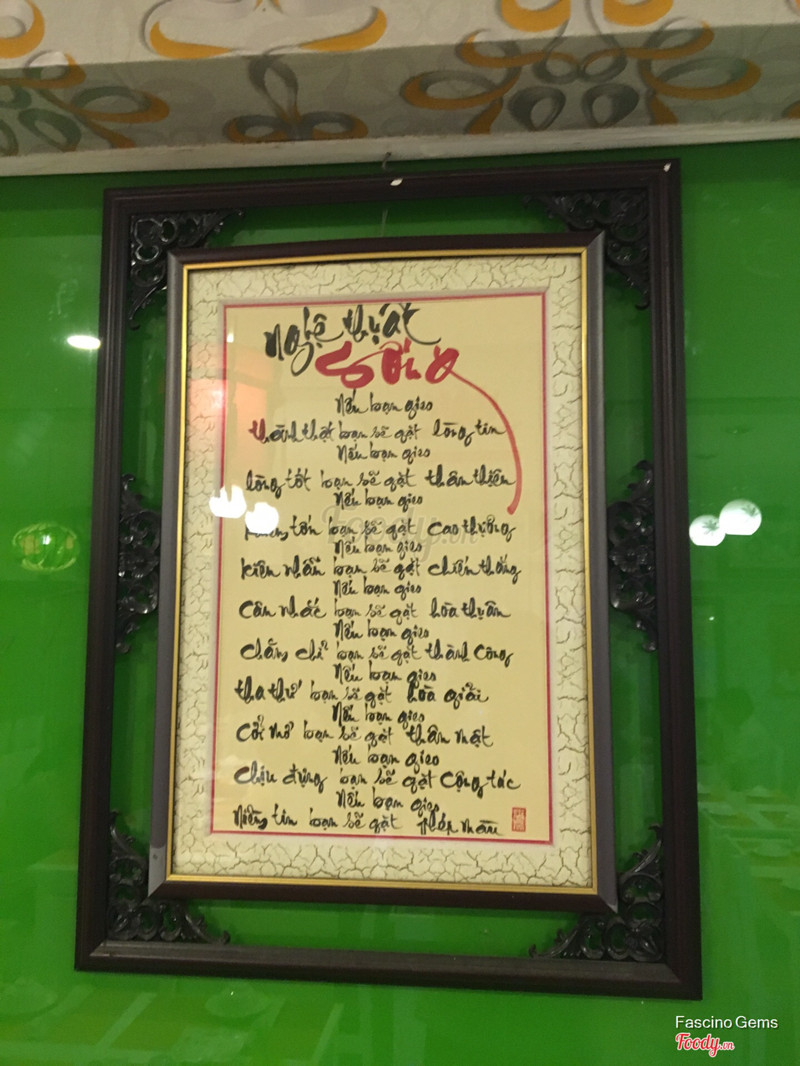 Nghệ thuật
Sống
Nếu bạn gieo
thành thật bạn sẽ gặt lòng tin
Nếu bạn gieo
lòng tốt bạn sẽ gặt thân thiện
Nếu bạn gieo
khiêm tốn bạn sẽ gặt cao thượng
Nếu bạn gieo
kiên nhẫn bạn sẽ gặt chiến thắng
Nếu bạn gieo
cân nhắc bạn sẽ gặt hòa thuận
Nếu bạn gieo
chăm chỉ bạn sẽ gặt thành công
Nếu bạn gieo
tha thứ bạn sẽ gặt hòa giải
Nếu bạn gieo
cởi mở bạn sẽ gặt thân mật
Nếu bạn gieo
chịu đựng bạn sẽ gặt cộng tác
Nếu bạn gieo
niềm tin bạn sẽ gặt phép màu
Fascino Gems
Foody.vn